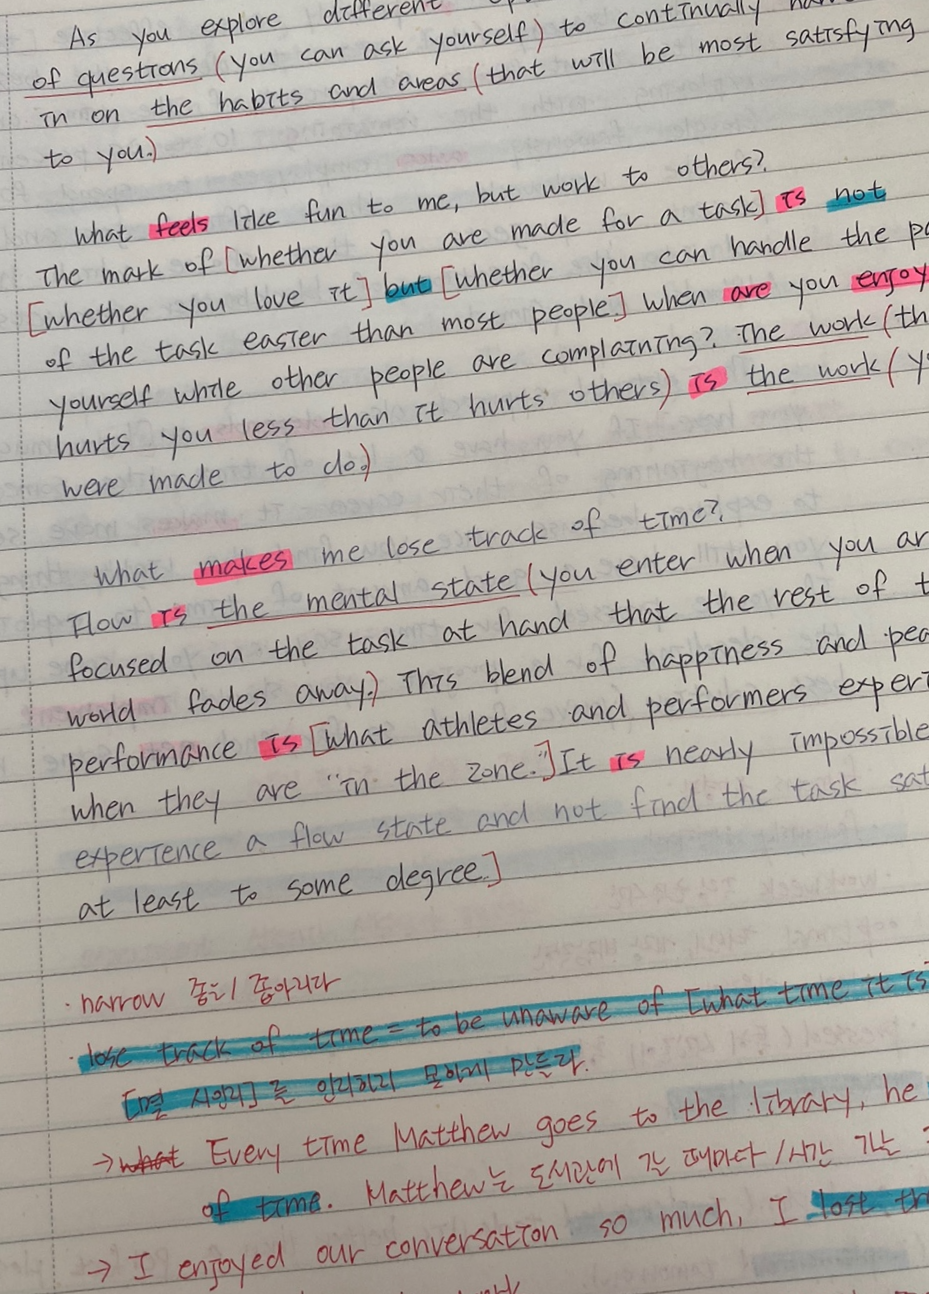 As you explore different
of questions (you can ask yourself) to continually
in on the habits and areas (that will be most satisfying
to you.)
What feels like fun to me, but work to others?
The mark of [whether you are made for a task] is not
[whether you love it] but [whether you can handle the
of the task easier than most people.] When are you enjoy
yourself while other people are complaining? The work (th
hurts you less than it hurts others) is the work (y
were made to do.)
What makes me lose track of time?
Flow is the mental state (you enter when you ar
focused on the task at hand that the rest of t
world fades away.) This blend of happiness and pea
performance is [what athletes and performers experi
when they are "in the zone."] It is nearly impossible
experience a flow state and not find the task sat
at least to some degree.]
· narrow 좁은 / 좁아지다
· lose track of time = to be unaware of [what time it is
[몇 시인지] 를 인지하지 못하게 만들다.
→ what Every time Matthew goes to the library, he
of time. Matthew는 도서관에 갈 때마다 / 시간 가는
→ I enjoyed our conversation so much, I lost tr